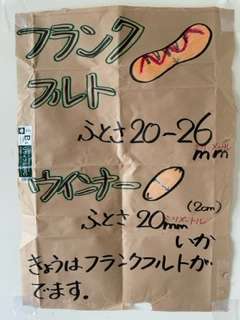 フランク
フルト
ふとさ20-26
mm
ウインナー
(2cm)
ふとさ20mmミリメートル
いか
きょうはフランクフルトが
でます。